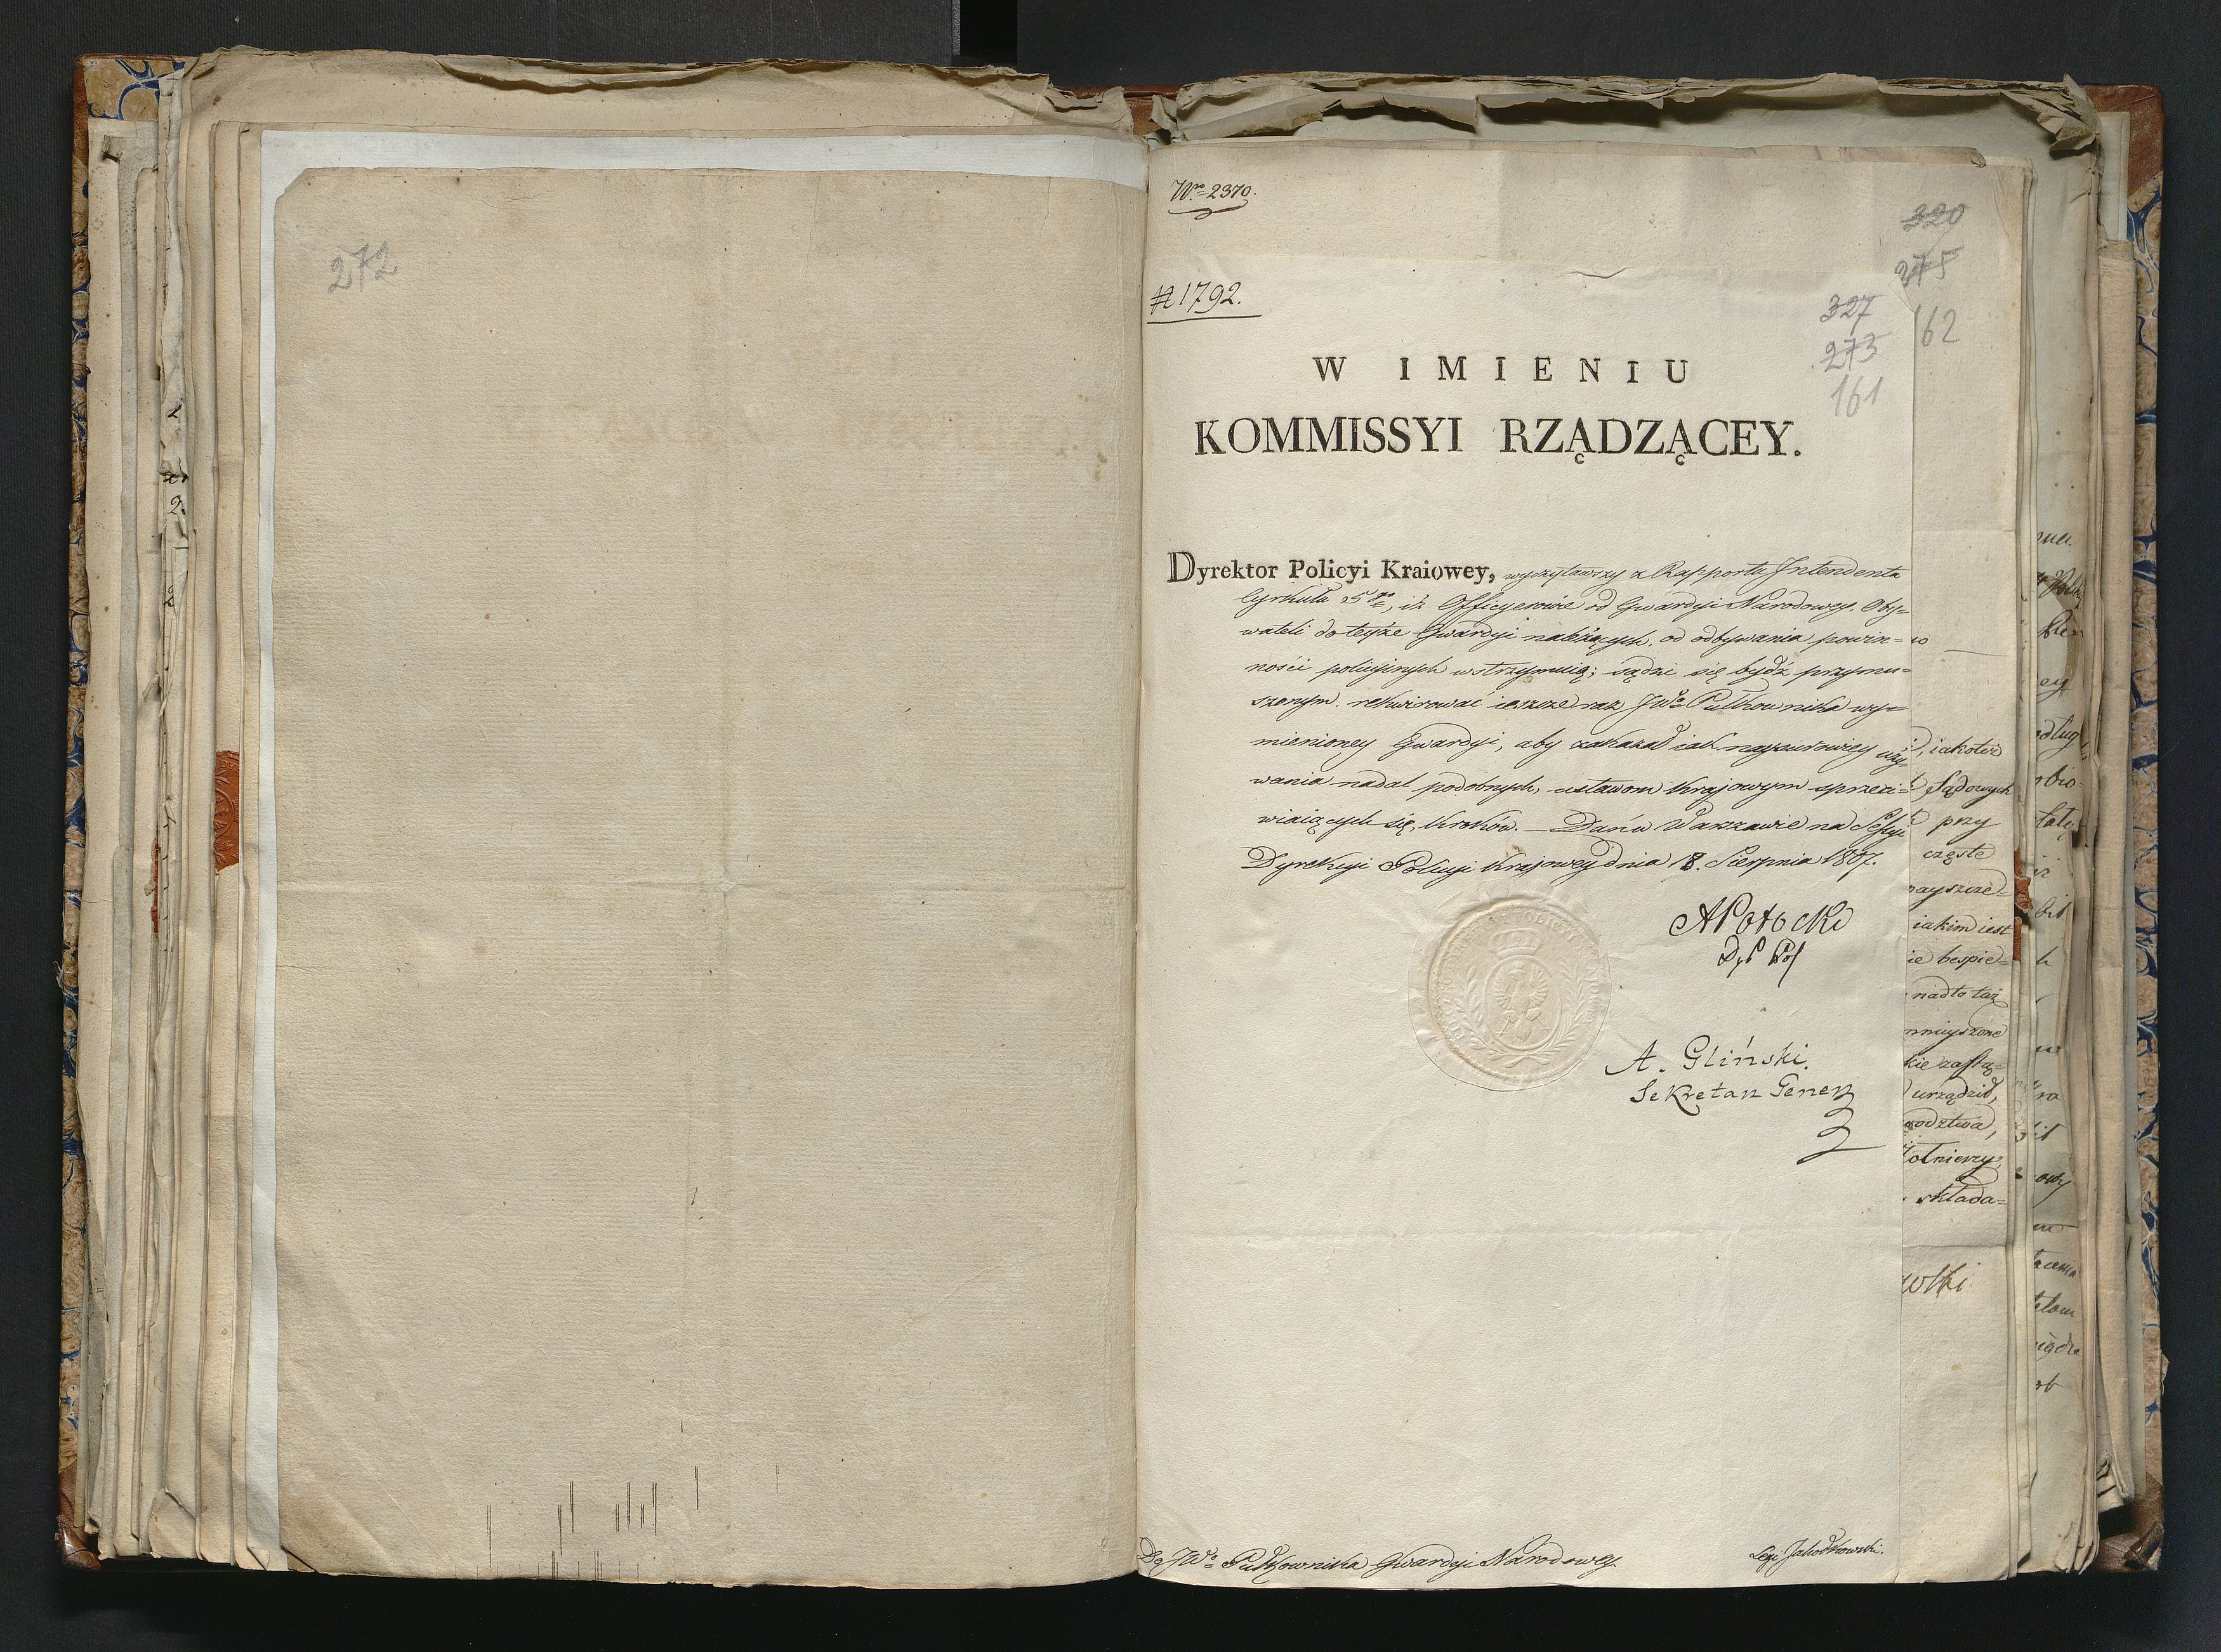 272
Nro 2370.
320
275
162
# 1792.
327
273
161
W IMIENIU
KOMMISSYI RZĄDZĄCEY.
Dyrektor Policyi Kraiowey, wyczytawszy z Rapportu Intendenta
Cyrkułu 5go, iż Officyerowie od Gwardyi Narodowey, Oby=
wateli do teyże Gwardyi należących, od odbywania powin=
ności policyinych wstrzymuią; sądzi się bydź przymu=
szonym rekwirować ieszcze raz JWo Pułkownika wy=
mienioney Gwardyi, aby zakazał iak naysurowiey uży=
wania nadal podobnych, ustawom Krajowym sprzeci=
wiaiących się, kroków. — Dan w Warszawie na Sessyi
Dyrekcyi Policyi Krajowey dnia 18. Sierpnia 1807.
APotocki
Dyr Pol
A. Gliński.
Sekretarz Gener
Do JWo Pułkownika Gwardyi Narodowey.
, iakoteż
Sądowych
przy
częste
nayszcze=
iakim iest
ie bespie=
nadto też
mnieyszone
kie zastą=
urządził,
wodztwa,
Żołnierzy
składa=